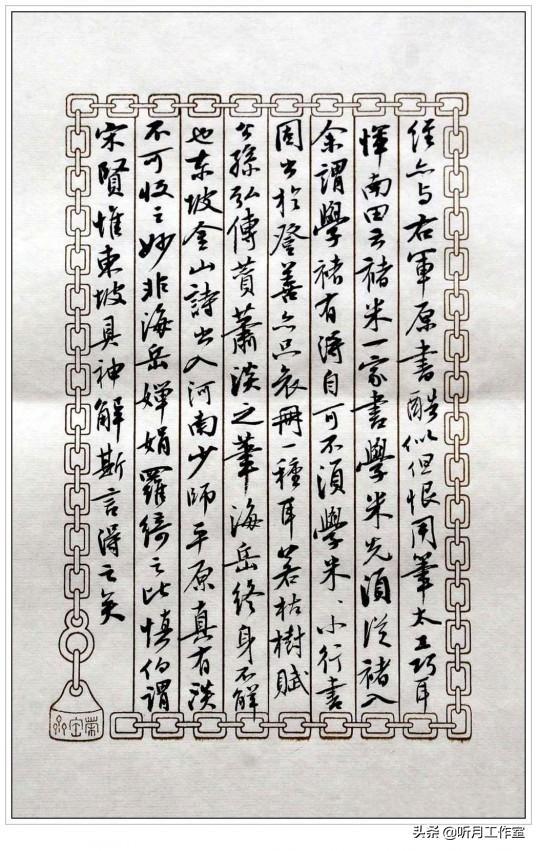 經亦与右軍原書酷似但恨用筆太工巧耳
惲南田云褚米一家書學米先須從褚入
余謂學褚有得自可不須學米、小行書
固出於登善亦只哀冊一種耳若枯樹賦
公孫弘傳贊蕭淡之筆海岳終身不解
也東坡金山詩出入河南少師平原真有淡
不可收之妙非海岳嬋娟羅綺之比慎伯謂
宋賢惟東坡具神解斯言得之矣
榮宝斋
头条 @听月工作室